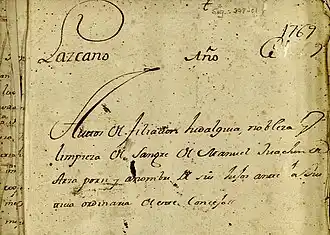 1769
Lazcano Año
Autos de filiacion hidalguia, nobleza y
limpieza de sangre de Manuel
por si y a nombre de sus hijos ante la Jus
ticia ordinaria de este Concejo